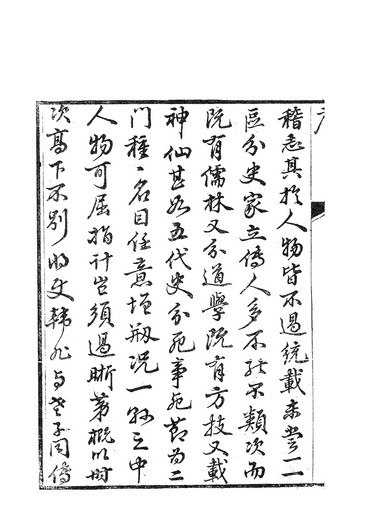 稽志其於人物皆不過統載未嘗一一
區分史家立傳人多不能不類次而
既有儒林又分道學既有方技又載
神仙甚如五代史分死事死節為二
門種種名目任意增刱況一縣之中
人物可屈指計豈須過晰第概以時
次高下不別也史韓非與老子同傳